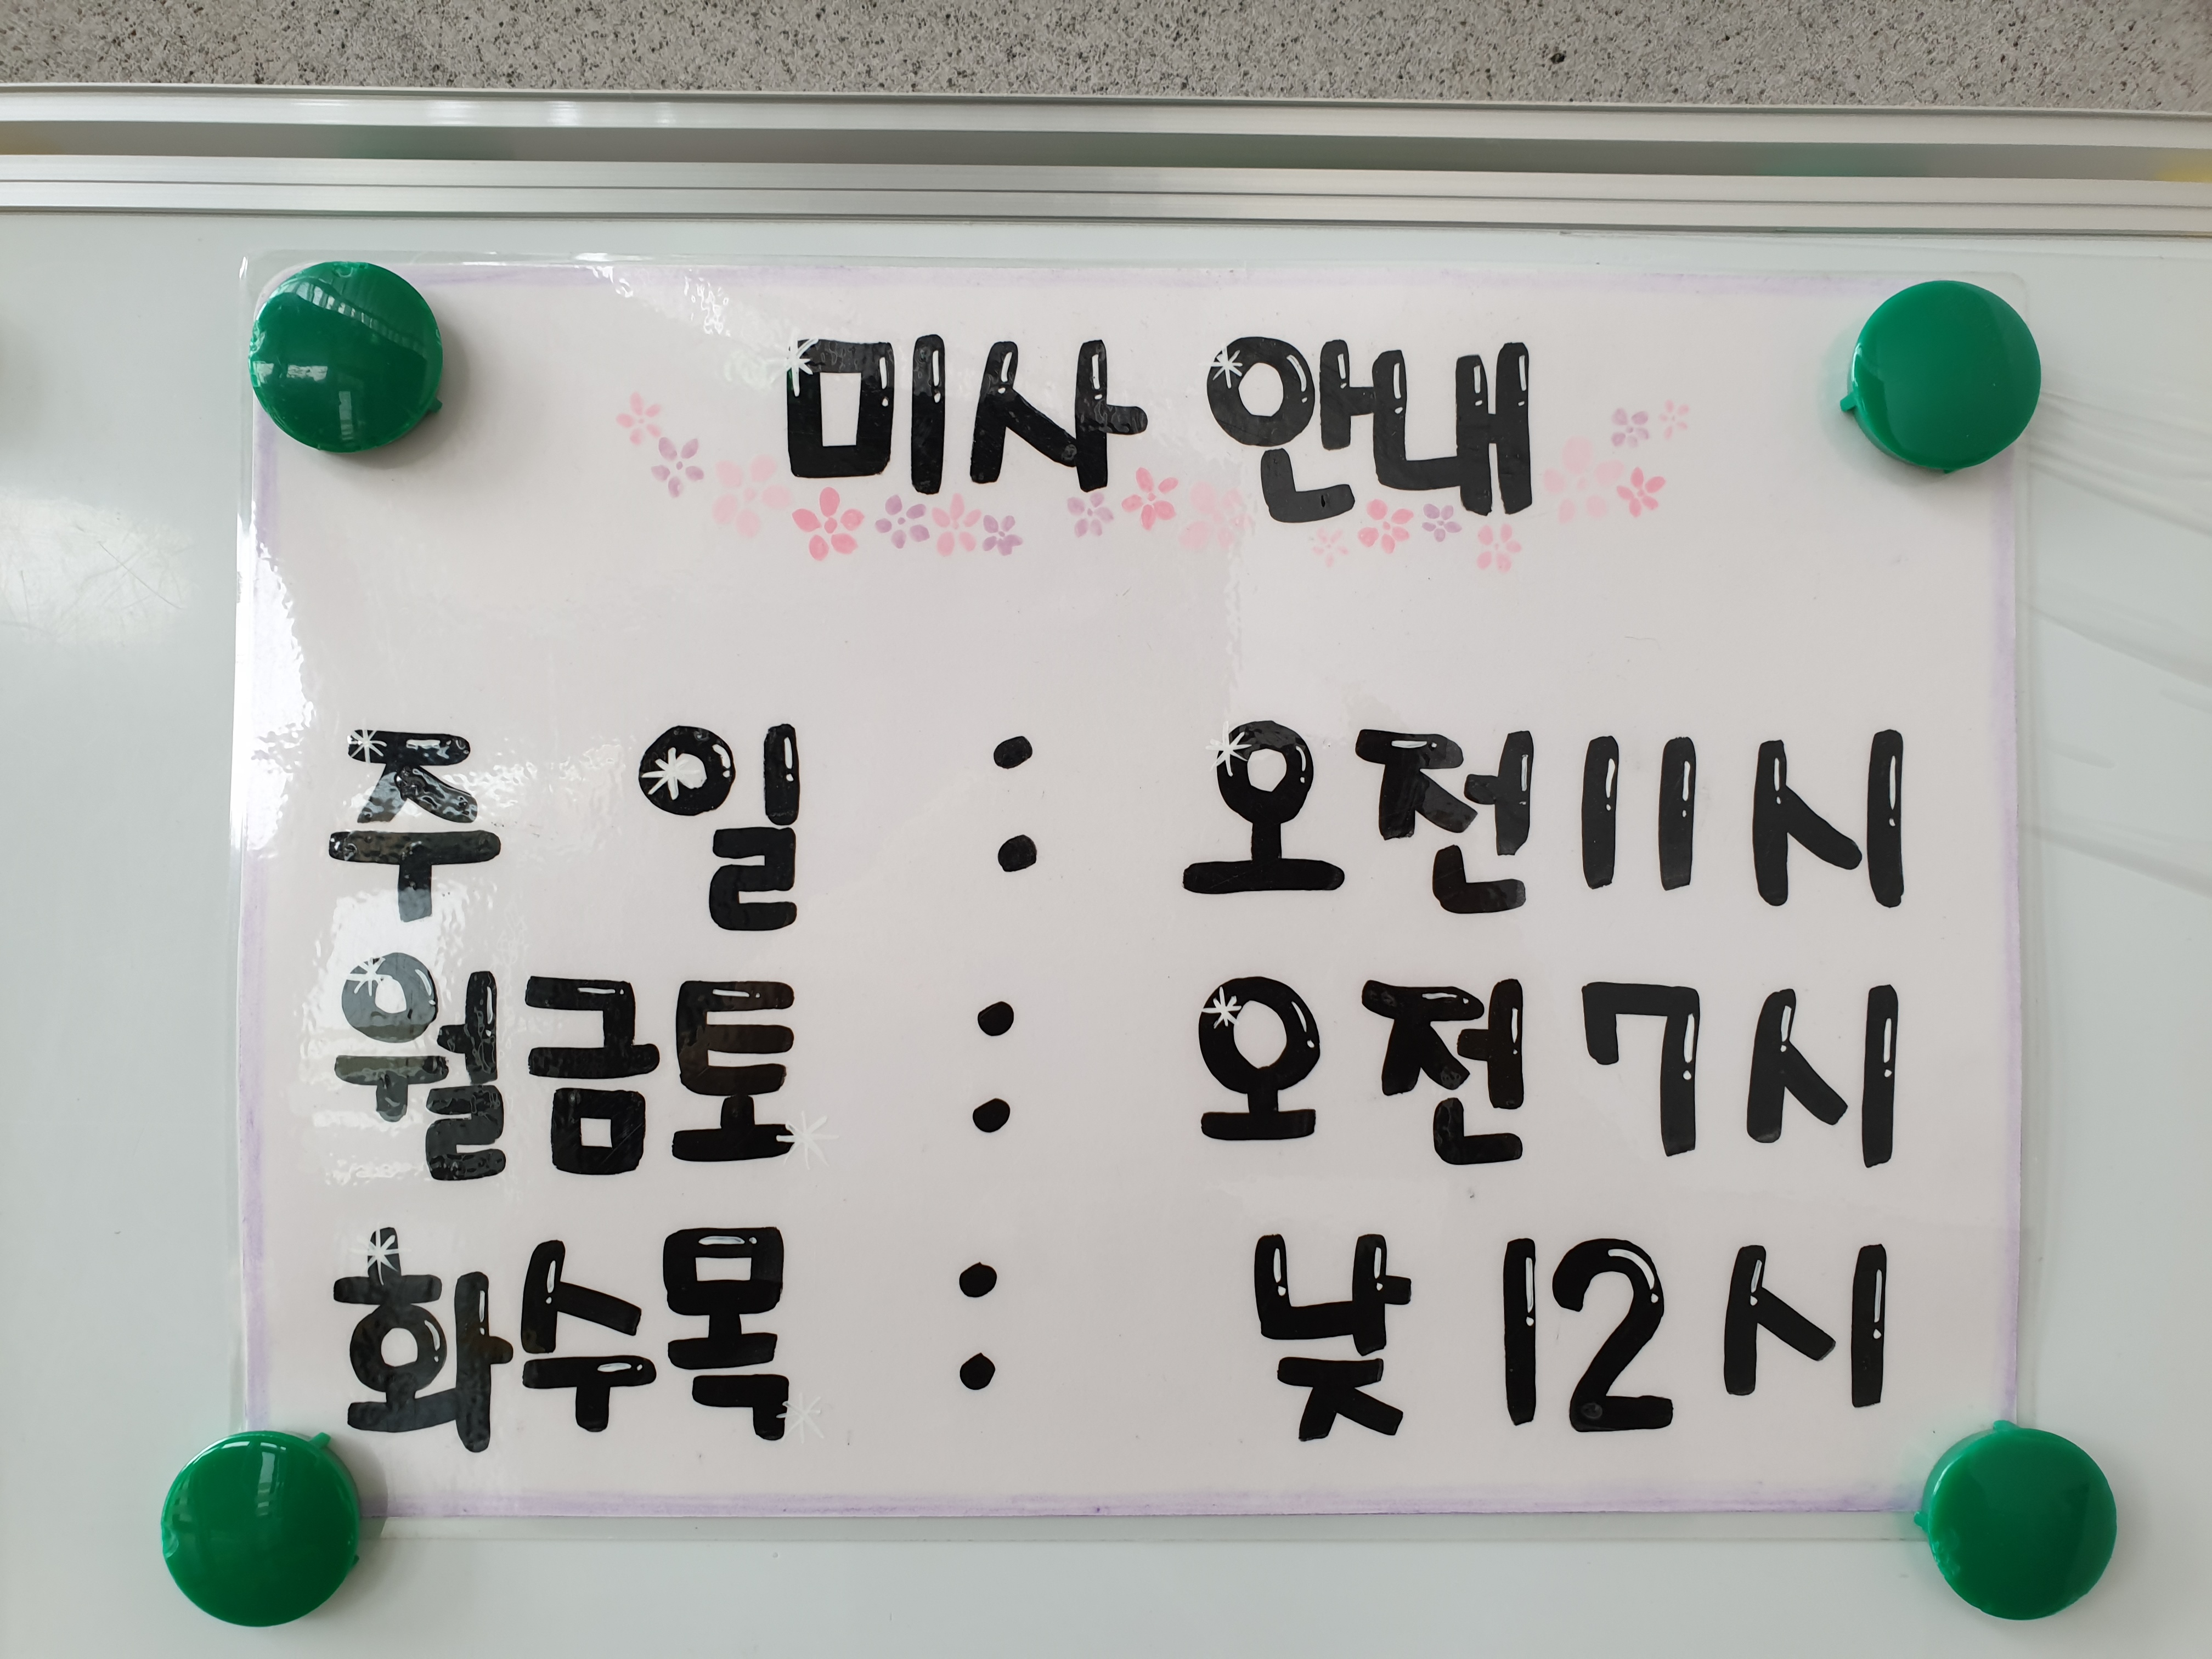 미사 안내
주 일 : 오전 11시
월금토 : 오전 7시
화수목 : 낮 12시